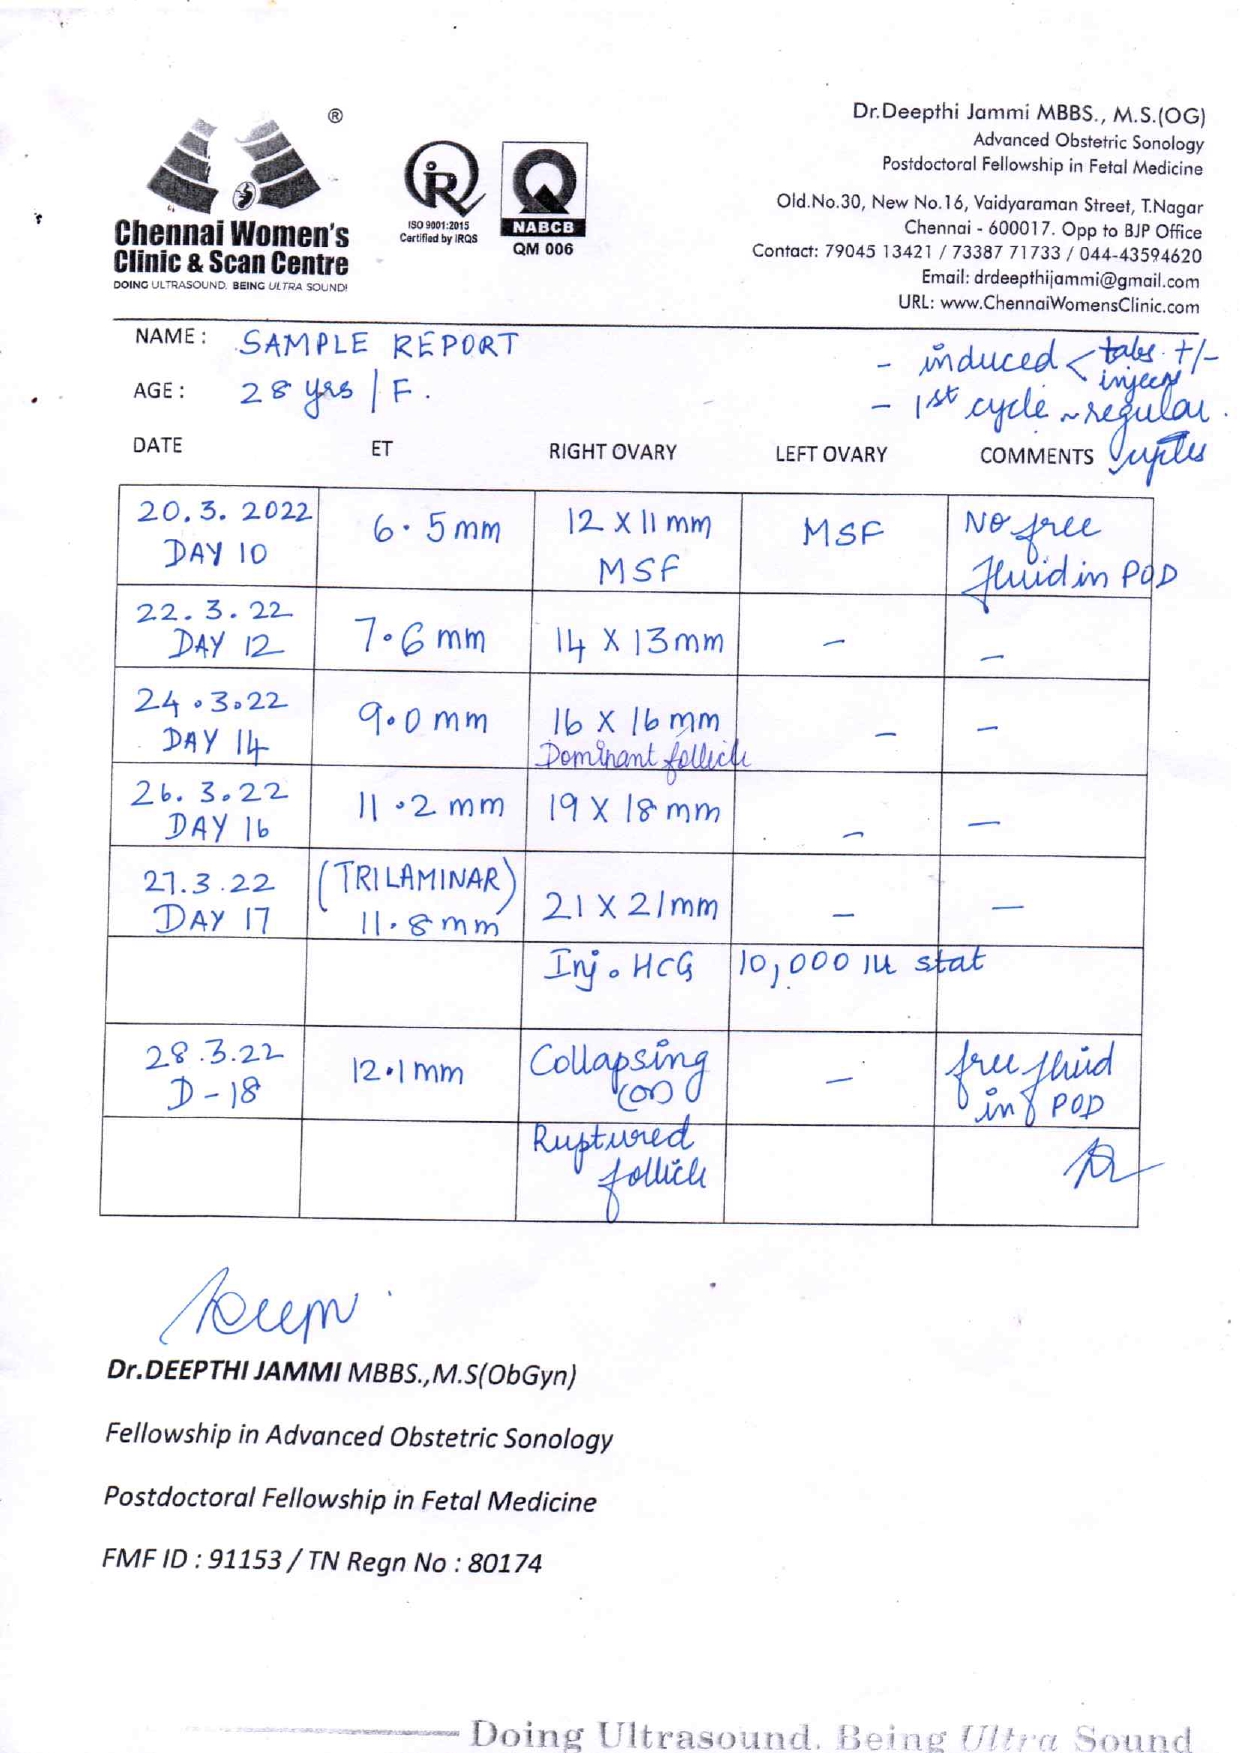 ®
Chennai Women's
Clinic & Scan Centre
DOING ULTRASOUND. BEING ULTRA SOUND!
iR
ISO 9001:2015
Certified by IRQS
NABCB
QM 006
Dr.Deepthi Jammi MBBS., M.S.(OG)
Advanced Obstetric Sonology
Postdoctoral Fellowship in Fetal Medicine
Old.No.30, New No.16, Vaidyaraman Street, T.Nagar
Chennai - 600017. Opp to BJP Office
Contact: 79045 13421 / 73387 71733 / 044-43594620
Email: drdeepthijammi@gmail.com
URL: www.ChennaiWomensClinic.com
NAME : SAMPLE REPORT
AGE : 28 yrs | F.
- induced < tabs. +/-
- 1st cycle ~ regular.
DATE ET RIGHT OVARY LEFT OVARY COMMENTS
20.3.2022 6.5 mm 12 X 11 mm MSF No free
DAY 10 MSF fluid in POD
22.3.22 7.6 mm 14 X 13 mm - -
DAY 12
24.3.22 9.0 mm 16 X 16 mm - -
DAY 14 Dominant follicle
26.3.22 11.2 mm 19 X 18 mm - -
DAY 16
27.3.22 (TRILAMINAR) 21 X 21 mm - -
DAY 17 11.8 mm
Inj. HCG 10,000 IU stat
28.3.22 12.1 mm Collapsing - free fluid
D-18 (or) in POD
Ruptured
follicle
Dr.DEEPTHI JAMMI MBBS.,M.S(ObGyn)
Fellowship in Advanced Obstetric Sonology
Postdoctoral Fellowship in Fetal Medicine
FMF ID : 91153 / TN Regn No : 80174
Doing Ultrasound. Being Ultra Sound